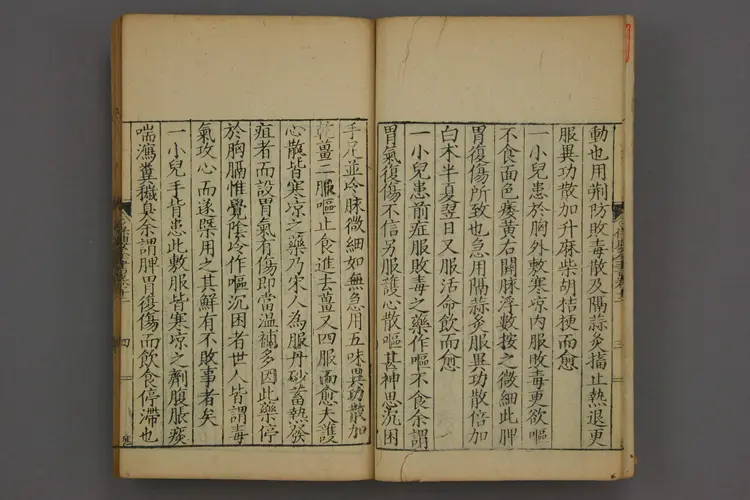 動也用荊防敗毒散及隔蒜炙搐止熱退更
服異功散加升麻柴胡桔梗而愈
一小兒患於胸外敷寒凉内服敗毒更欲嘔
不食面色痿黄右關脉浮數按之微細此脾
胃復傷所致也急用隔蒜炙服異功散倍加
白术半夏翌日又服活命飲而愈
一小兒患前症服敗毒之藥作嘔不食余謂
胃氣復傷不信另服護心散嘔甚神思沉困
手足並冷脉微細如無急用五味異功散加
乾薑二服嘔止食進去薑又四服而愈夫護
心散皆寒凉之藥乃宋人為服丹砂蓄熱發
疽者而設胃氣有傷即當温補多因此藥停
於胸膈惟覺陰冷作嘔沉困者世人皆謂毒
氣攻心而遂槩用之其鮮有不敗事者矣
一小兒手背患此敷服皆寒凉之劑腹脹痰
喘瀉糞穢臭余謂脾胃復傷而飲食停滯也
三
四